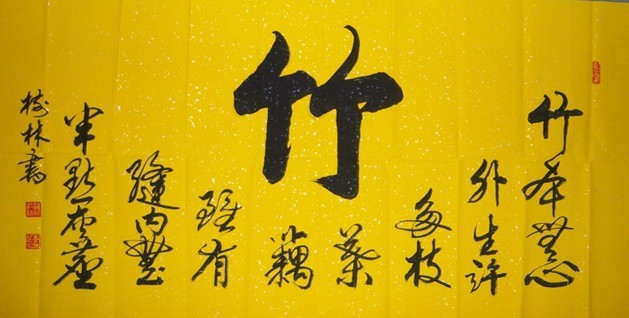 竹
竹本無心
外生許
多枝
葉
藕
雖有
縫內無
半點灰塵
樹林書